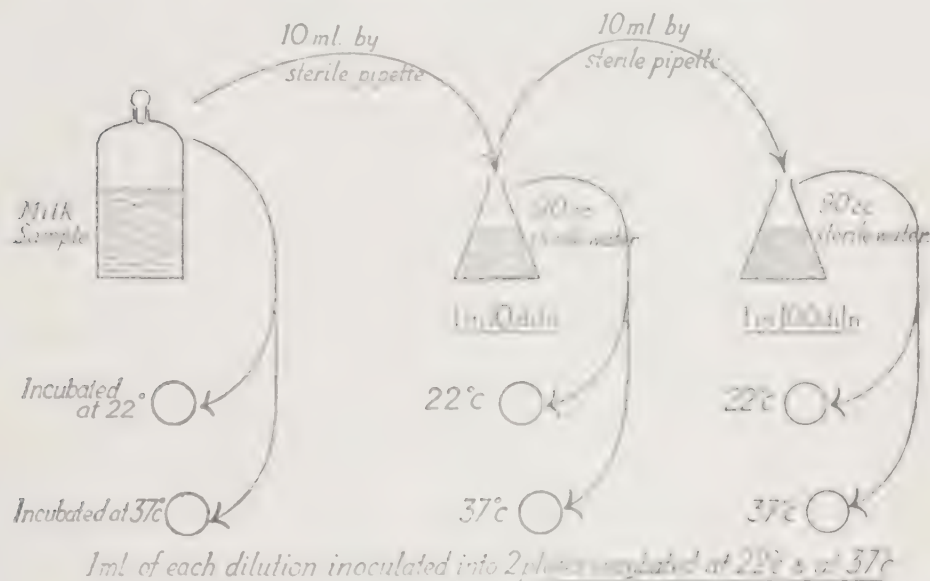 10 ml. by
sterile pipette
10 ml by
sterile pipette
Milk
Sample
90 cc
sterile water
90 cc
sterile water
1 in 10 diln
1 in 100 diln
Incubated
at 22°
22°c
22°c
Incubated at 37°c
37°c
37°c
1ml of each dilution inoculated into 2 plates incubated at 22°c & at 37°c